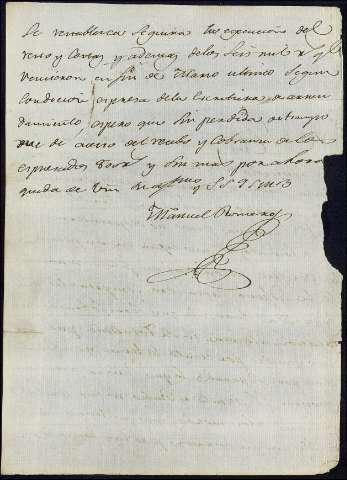 se restablesca seguirá la execucion del
resto y Costas y ademas de los seis mil r.s q.e
vencieron en fin de Marzo ultimo segun
condicion expresa de la Escritura de arren
damiento, espero que sin perdida de tiempo
me de aviso del recibo y cobranza de los
expresados 800 r.s y sin mas por ahora
queda de Vm
Manuel Romero